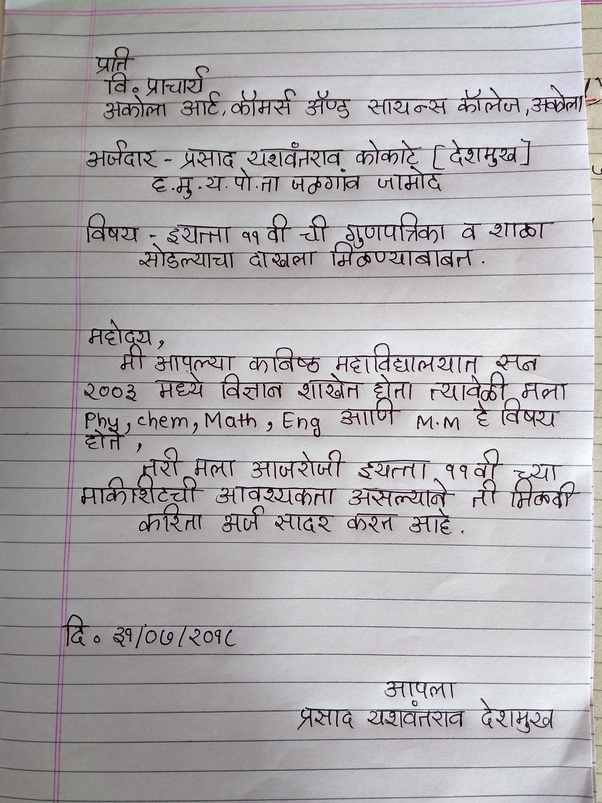 प्रति
वि. प्राचार्य
अकोला आर्ट, कॉमर्स ॲण्ड सायन्स कॉलेज, अकोला
अर्जदार - प्रसाद यशवंतराव कोकाटे [देशमुख]
ह.मु.य.पो.ता जळगांव जामोद
विषय - इयत्ता ११ वी ची गुणपत्रिका व शाळा
सोडल्याचा दाखला मिळण्याबाबत.
महोदय,
मी आपल्या कनिष्ठ महाविद्यालयात सन
२००३ मध्ये विज्ञान शाखेत होतो त्यावेळी मला
Phy, chem, Math, Eng आणि M.M हे विषय
होते,
तरी मला आजरोजी इयत्ता ११वी च्या
मार्कशिटची आवश्यकता असल्याने ती मिळवी
करिता अर्ज सादर करत आहे.
दि. ३१/०७/२०१८
आपला
प्रसाद यशवंतराव देशमुख